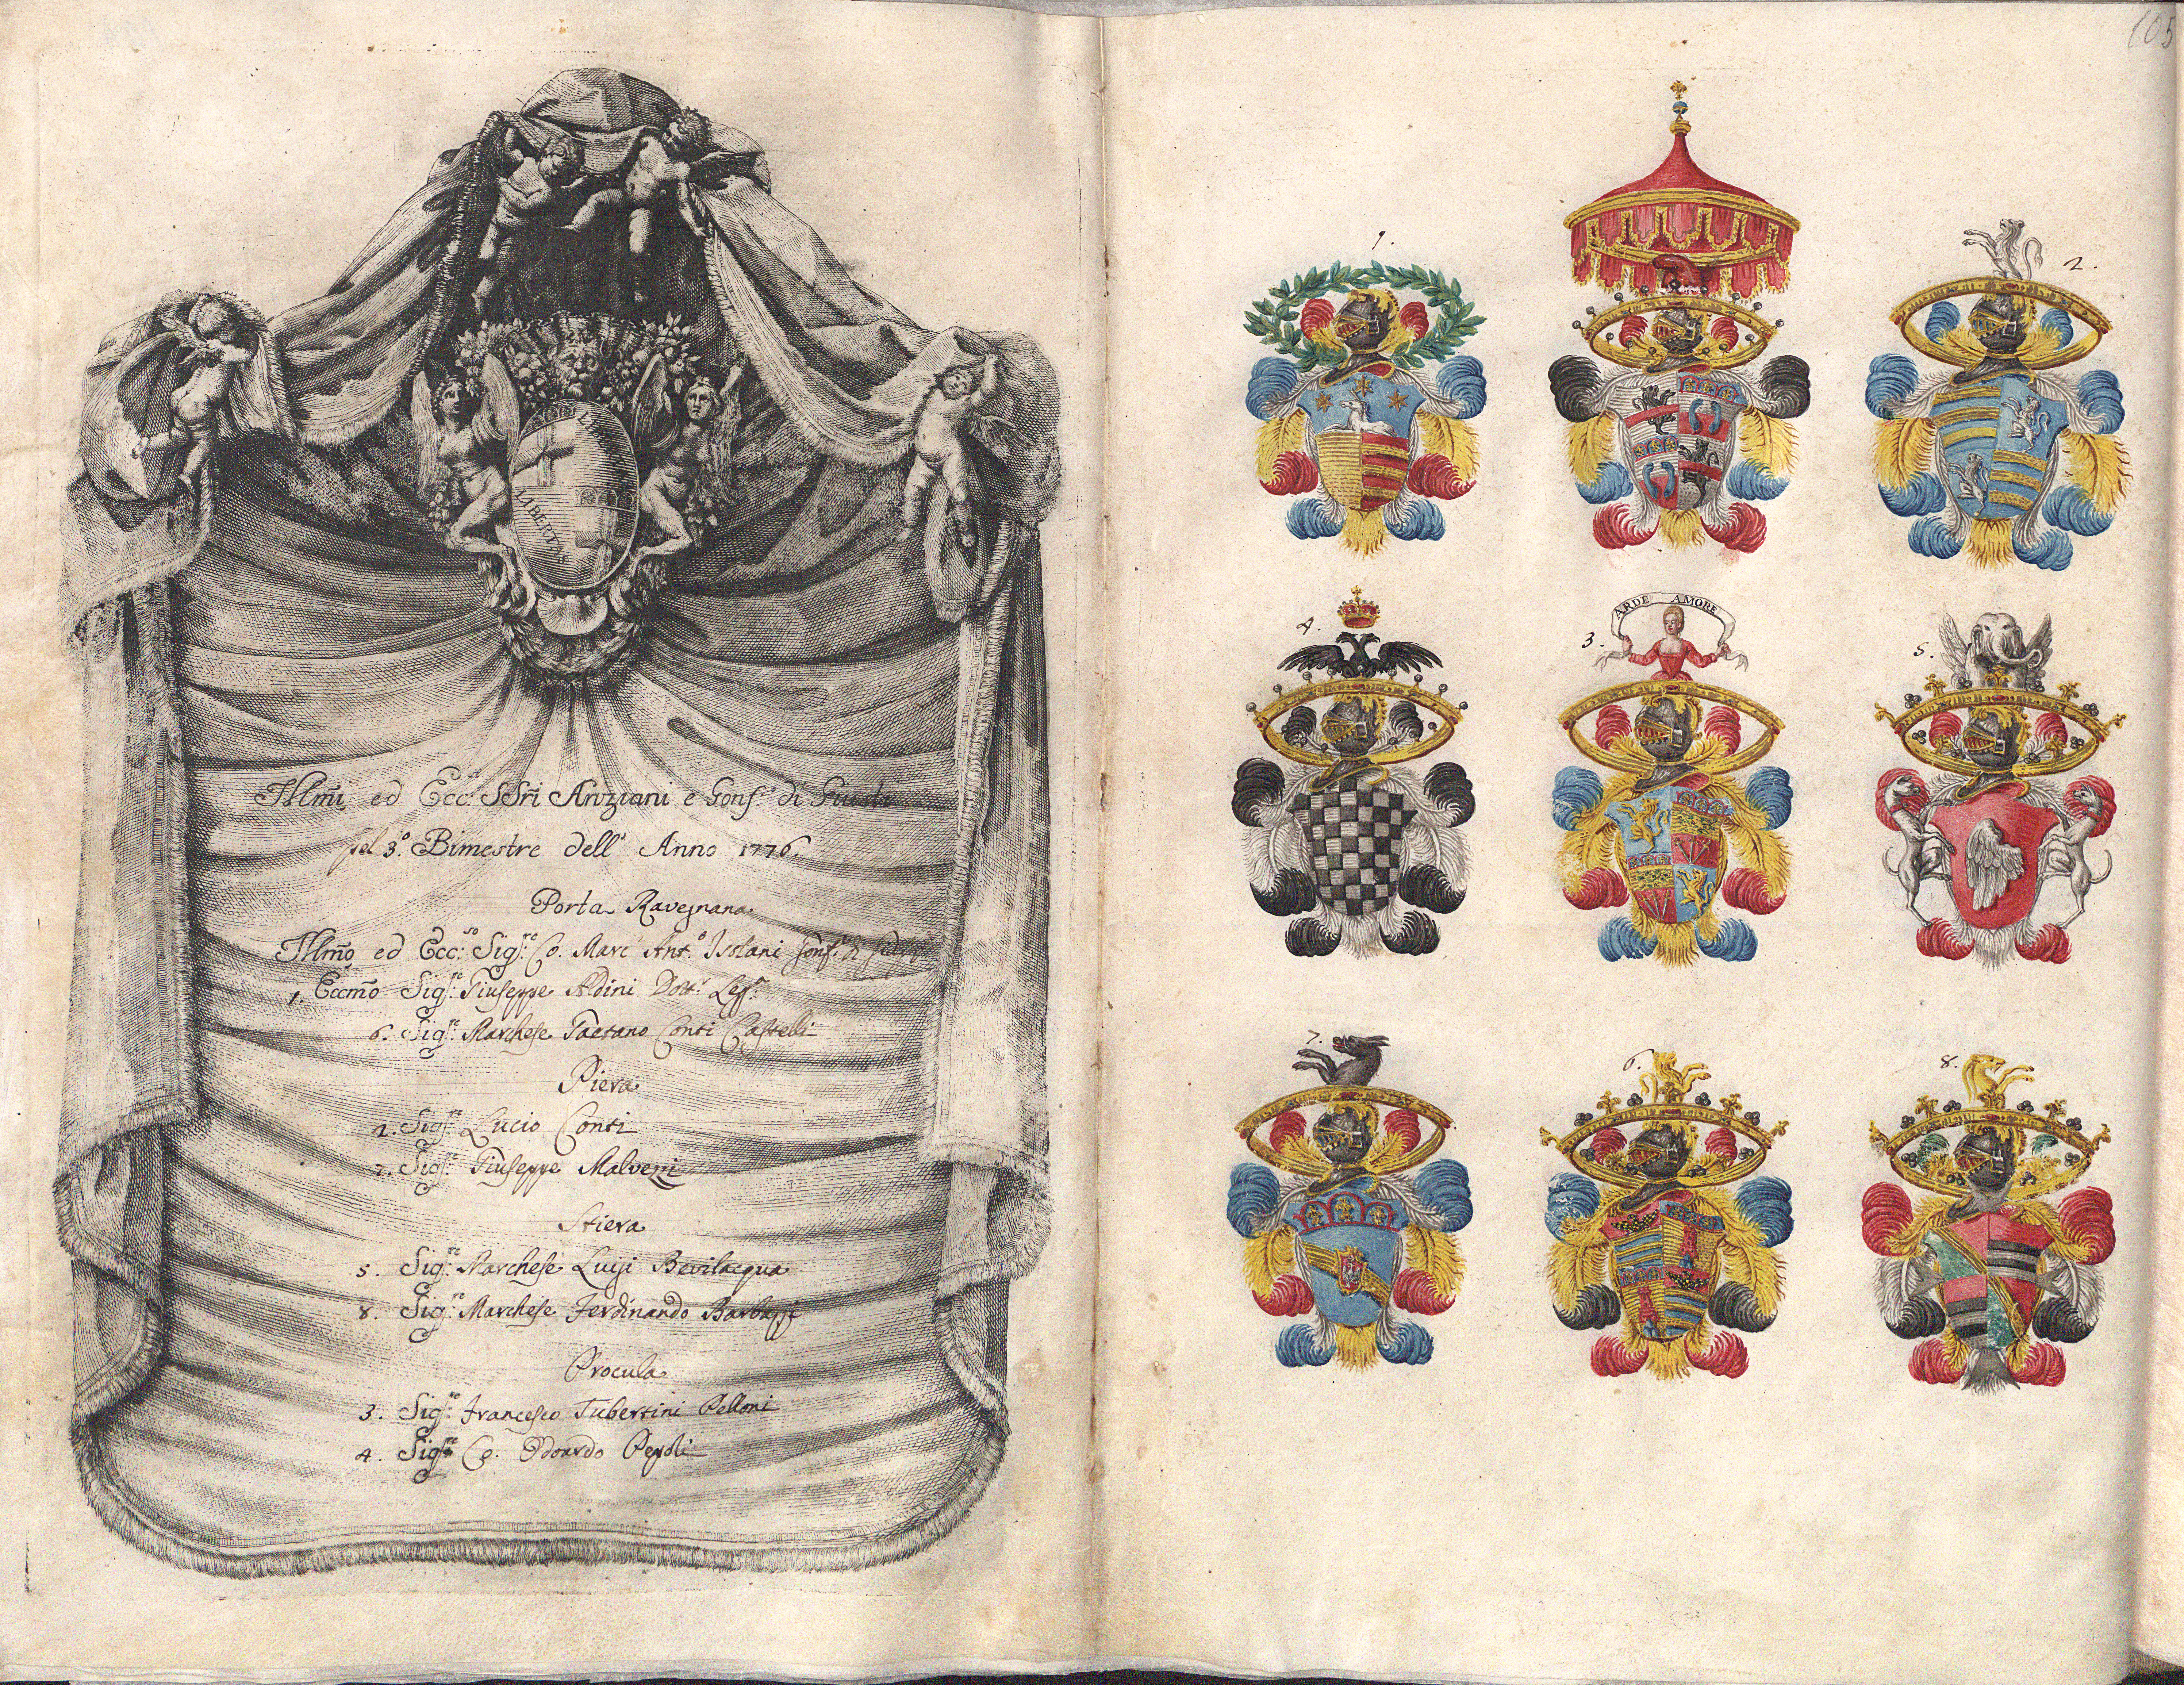 105
LIBERTAS
LIBERTAS
Illmi ed Ecc.si SSri Anziani e Gonf.e di Giusti
pel 3.o Bimestre dell' Anno 1776.
Porta Ravegnana
Illmo ed Ecc:so Sig:re Co. Marc' Ant.o Isolani Gonf.e di
1. Eccmo Sig:re Giuseppe Aldini Dott.r Leg.
6. Sig:re Marchese Gaetano Conti Castelli
Piera
2. Sig:re Lucio Conti
7. Sig:re Giuseppe Malvezzi
Stiera
5. Sig:re Marchese Luigi Bevilacqua
8. Sig:re Marchese Ferdinando Barbazz
Procula
3. Sig:re Francesco Tubertini Pelloni
4. Sig:re Co. Odoardo Pepoli
1.
2.
4.
3.
ARDE AMORE
5.
7.
6.
8.